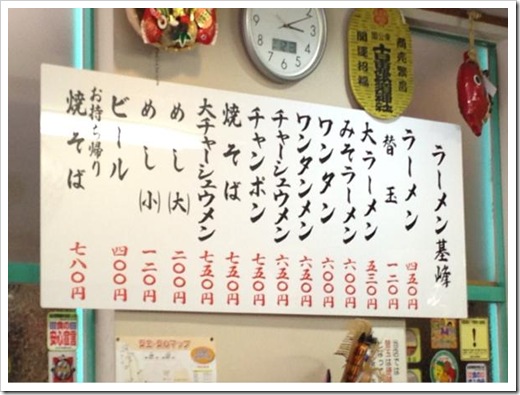 ラーメン基峰
ラーメン 四五〇円
替玉 一二〇円
大ラーメン 五三〇円
みそラーメン 六〇〇円
ワンタン 六〇〇円
ワンタンメン 六五〇円
チャーシュウメン 六五〇円
チャンポン 七五〇円
焼そば 七五〇円
大チャーシュウメン 七五〇円
めし(大) 二〇〇円
めし(小) 一二〇円
ビール 四〇〇円
お持ち帰り
焼そば 七八〇円
商売繁昌
開運招福